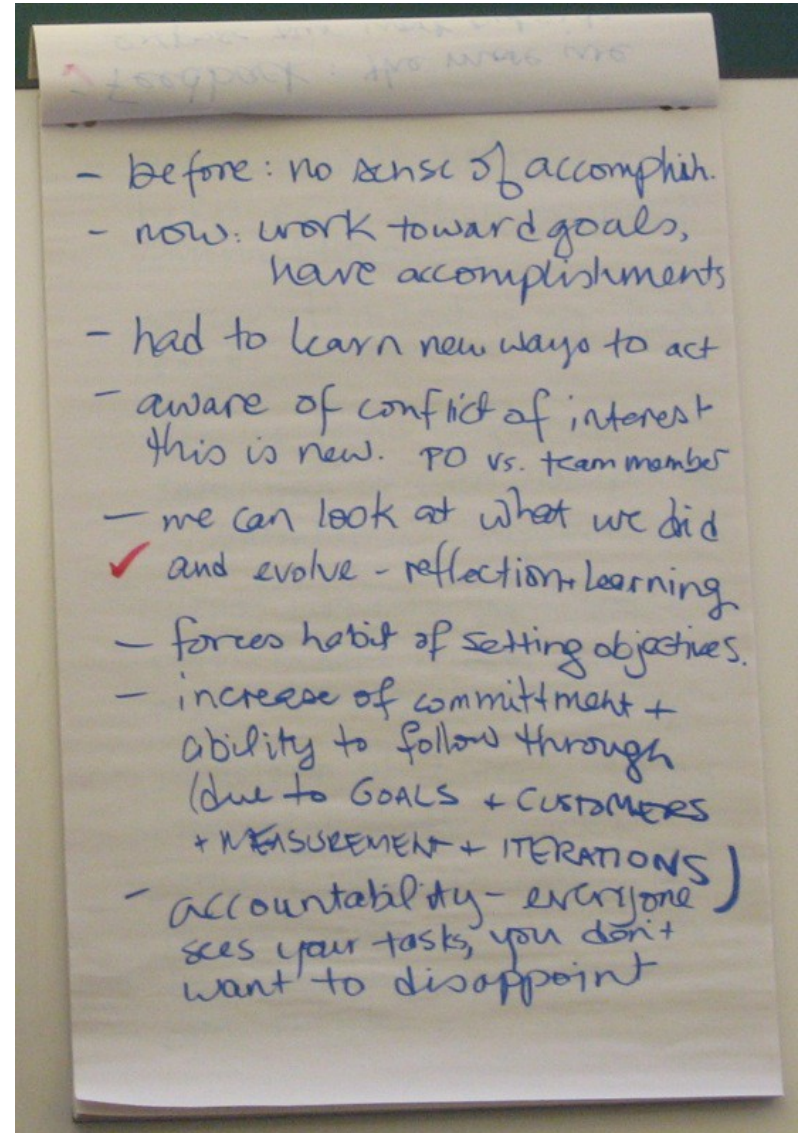 Feedback: the more we
- before: no sense of accomplish.
- now: work toward goals,
have accomplishments
- had to learn new ways to act
- aware of conflict of interest
this is new. PO vs. team member
- we can look at what we did
✓ and evolve - reflection + learning
- forces habit of setting objectives.
- increase of committment +
ability to follow through
(due to GOALS + CUSTOMERS
+ MEASUREMENT + ITERATIONS)
- accountability - everyone
sees your tasks, you don't
want to disappoint